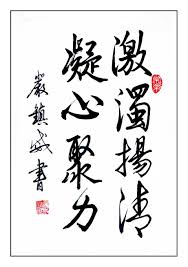 激濁揚清
凝心聚力
嚴鎮威書